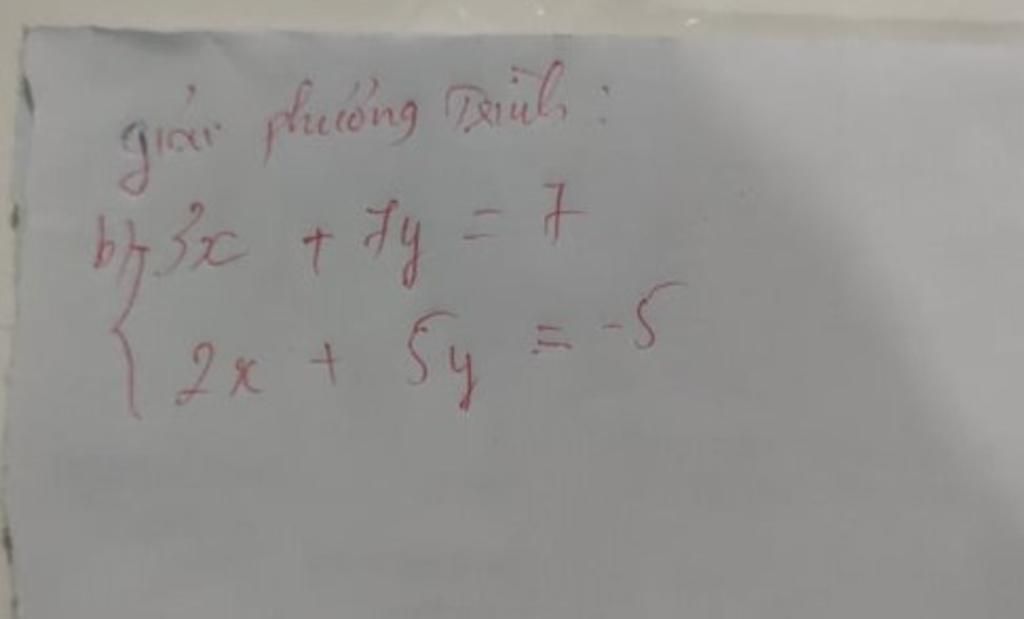 giải phương trình :
b) 3x + 7y = 7
{ 2x + 5y = -5